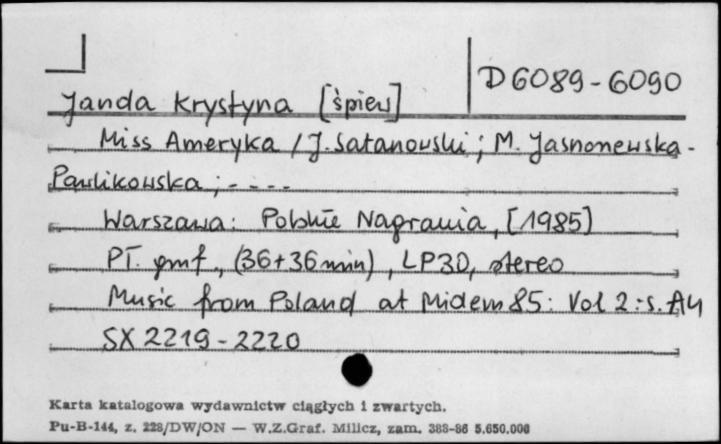 D 6089-6090
Janda Krystyna [śpiew]
Miss Ameryka / J. Satanowski ; M. Jasnorzewska-
Pawlikowska ; - - - -
Warszawa : Polskie Nagrania, [1985]
PŁ. gmf., (36+36 min), LP30, stereo
Music from Poland at Midem 85 : Vol 2 : s. A4
SX 2219-2220
Karta katalogowa wydawnictw ciągłych i zwartych.
Pu-B-144, z. 228/DW/ON — W.Z.Graf. Milicz, zam. 388-86 5.650.000